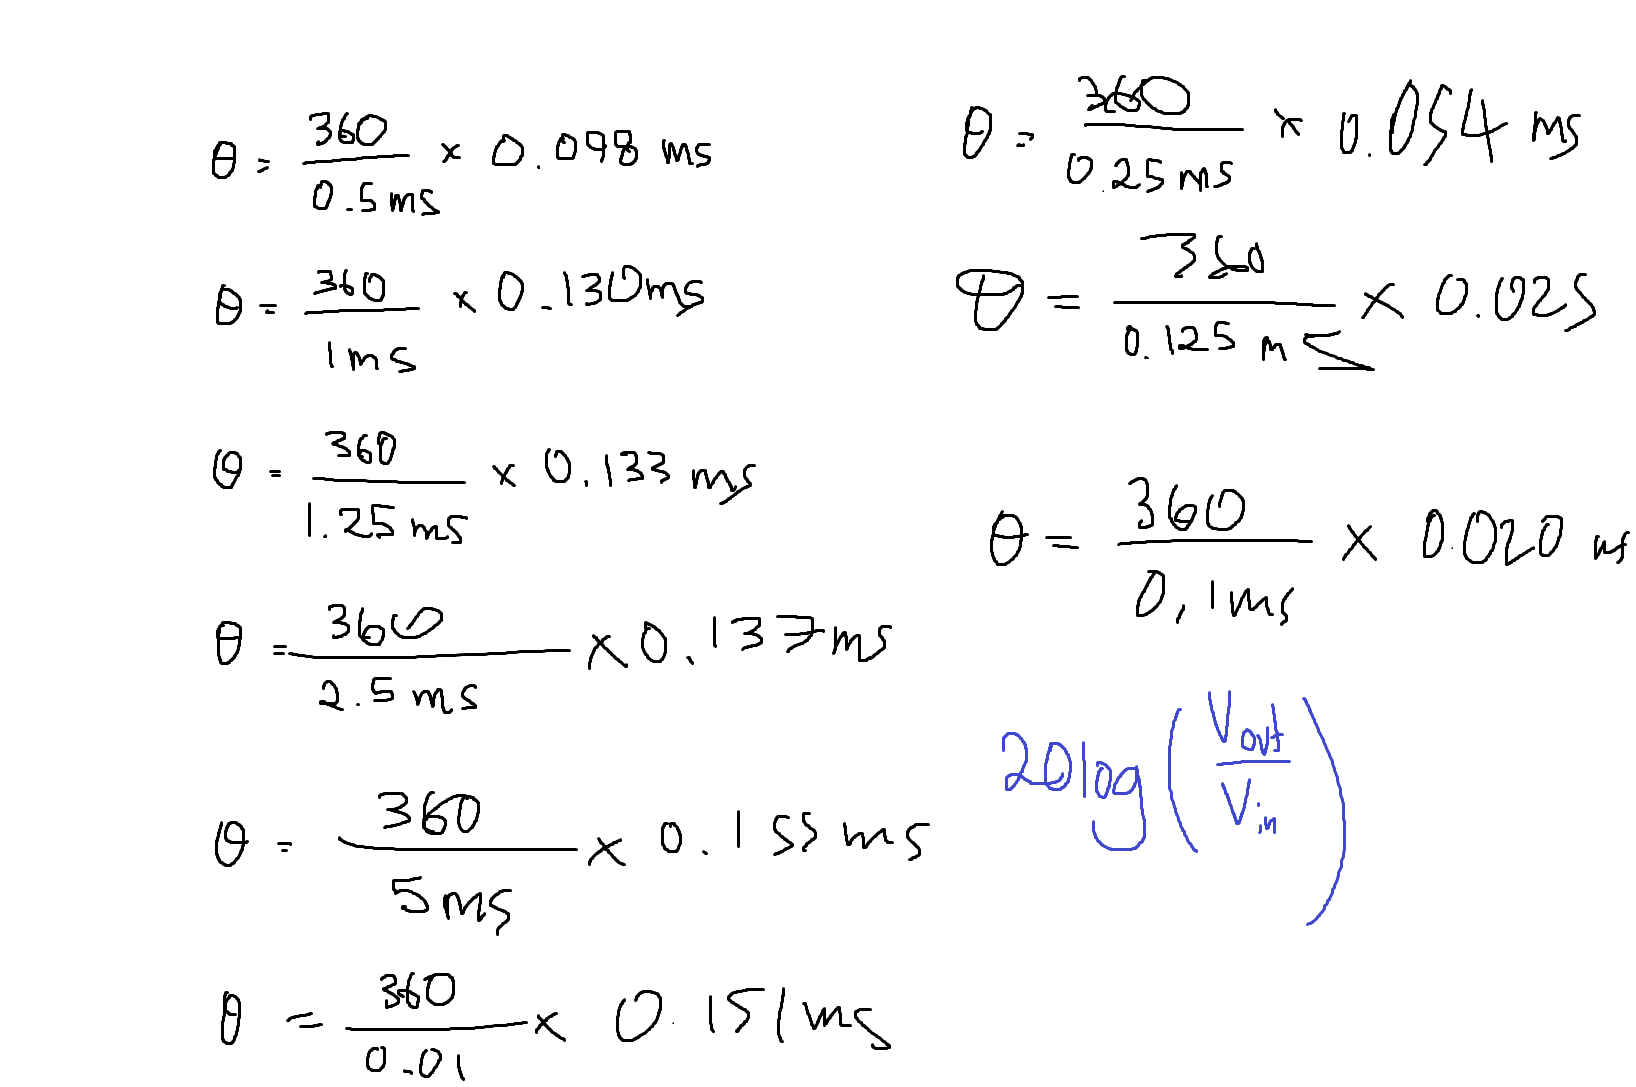 θ = 360/0.5ms × 0.098 ms
θ = 360/1ms × 0.130ms
θ = 360/1.25 ms × 0.133 ms
θ = 360/2.5 ms × 0.137ms
θ = 360/5ms × 0.155 ms
θ = 360/0.01 × 0.151ms
θ = 360/0.25 ms × 0.054 ms
θ = 360/0.125 ms × 0.025
θ = 360/0.1ms × 0.020 ms
20log(Vout/Vin)